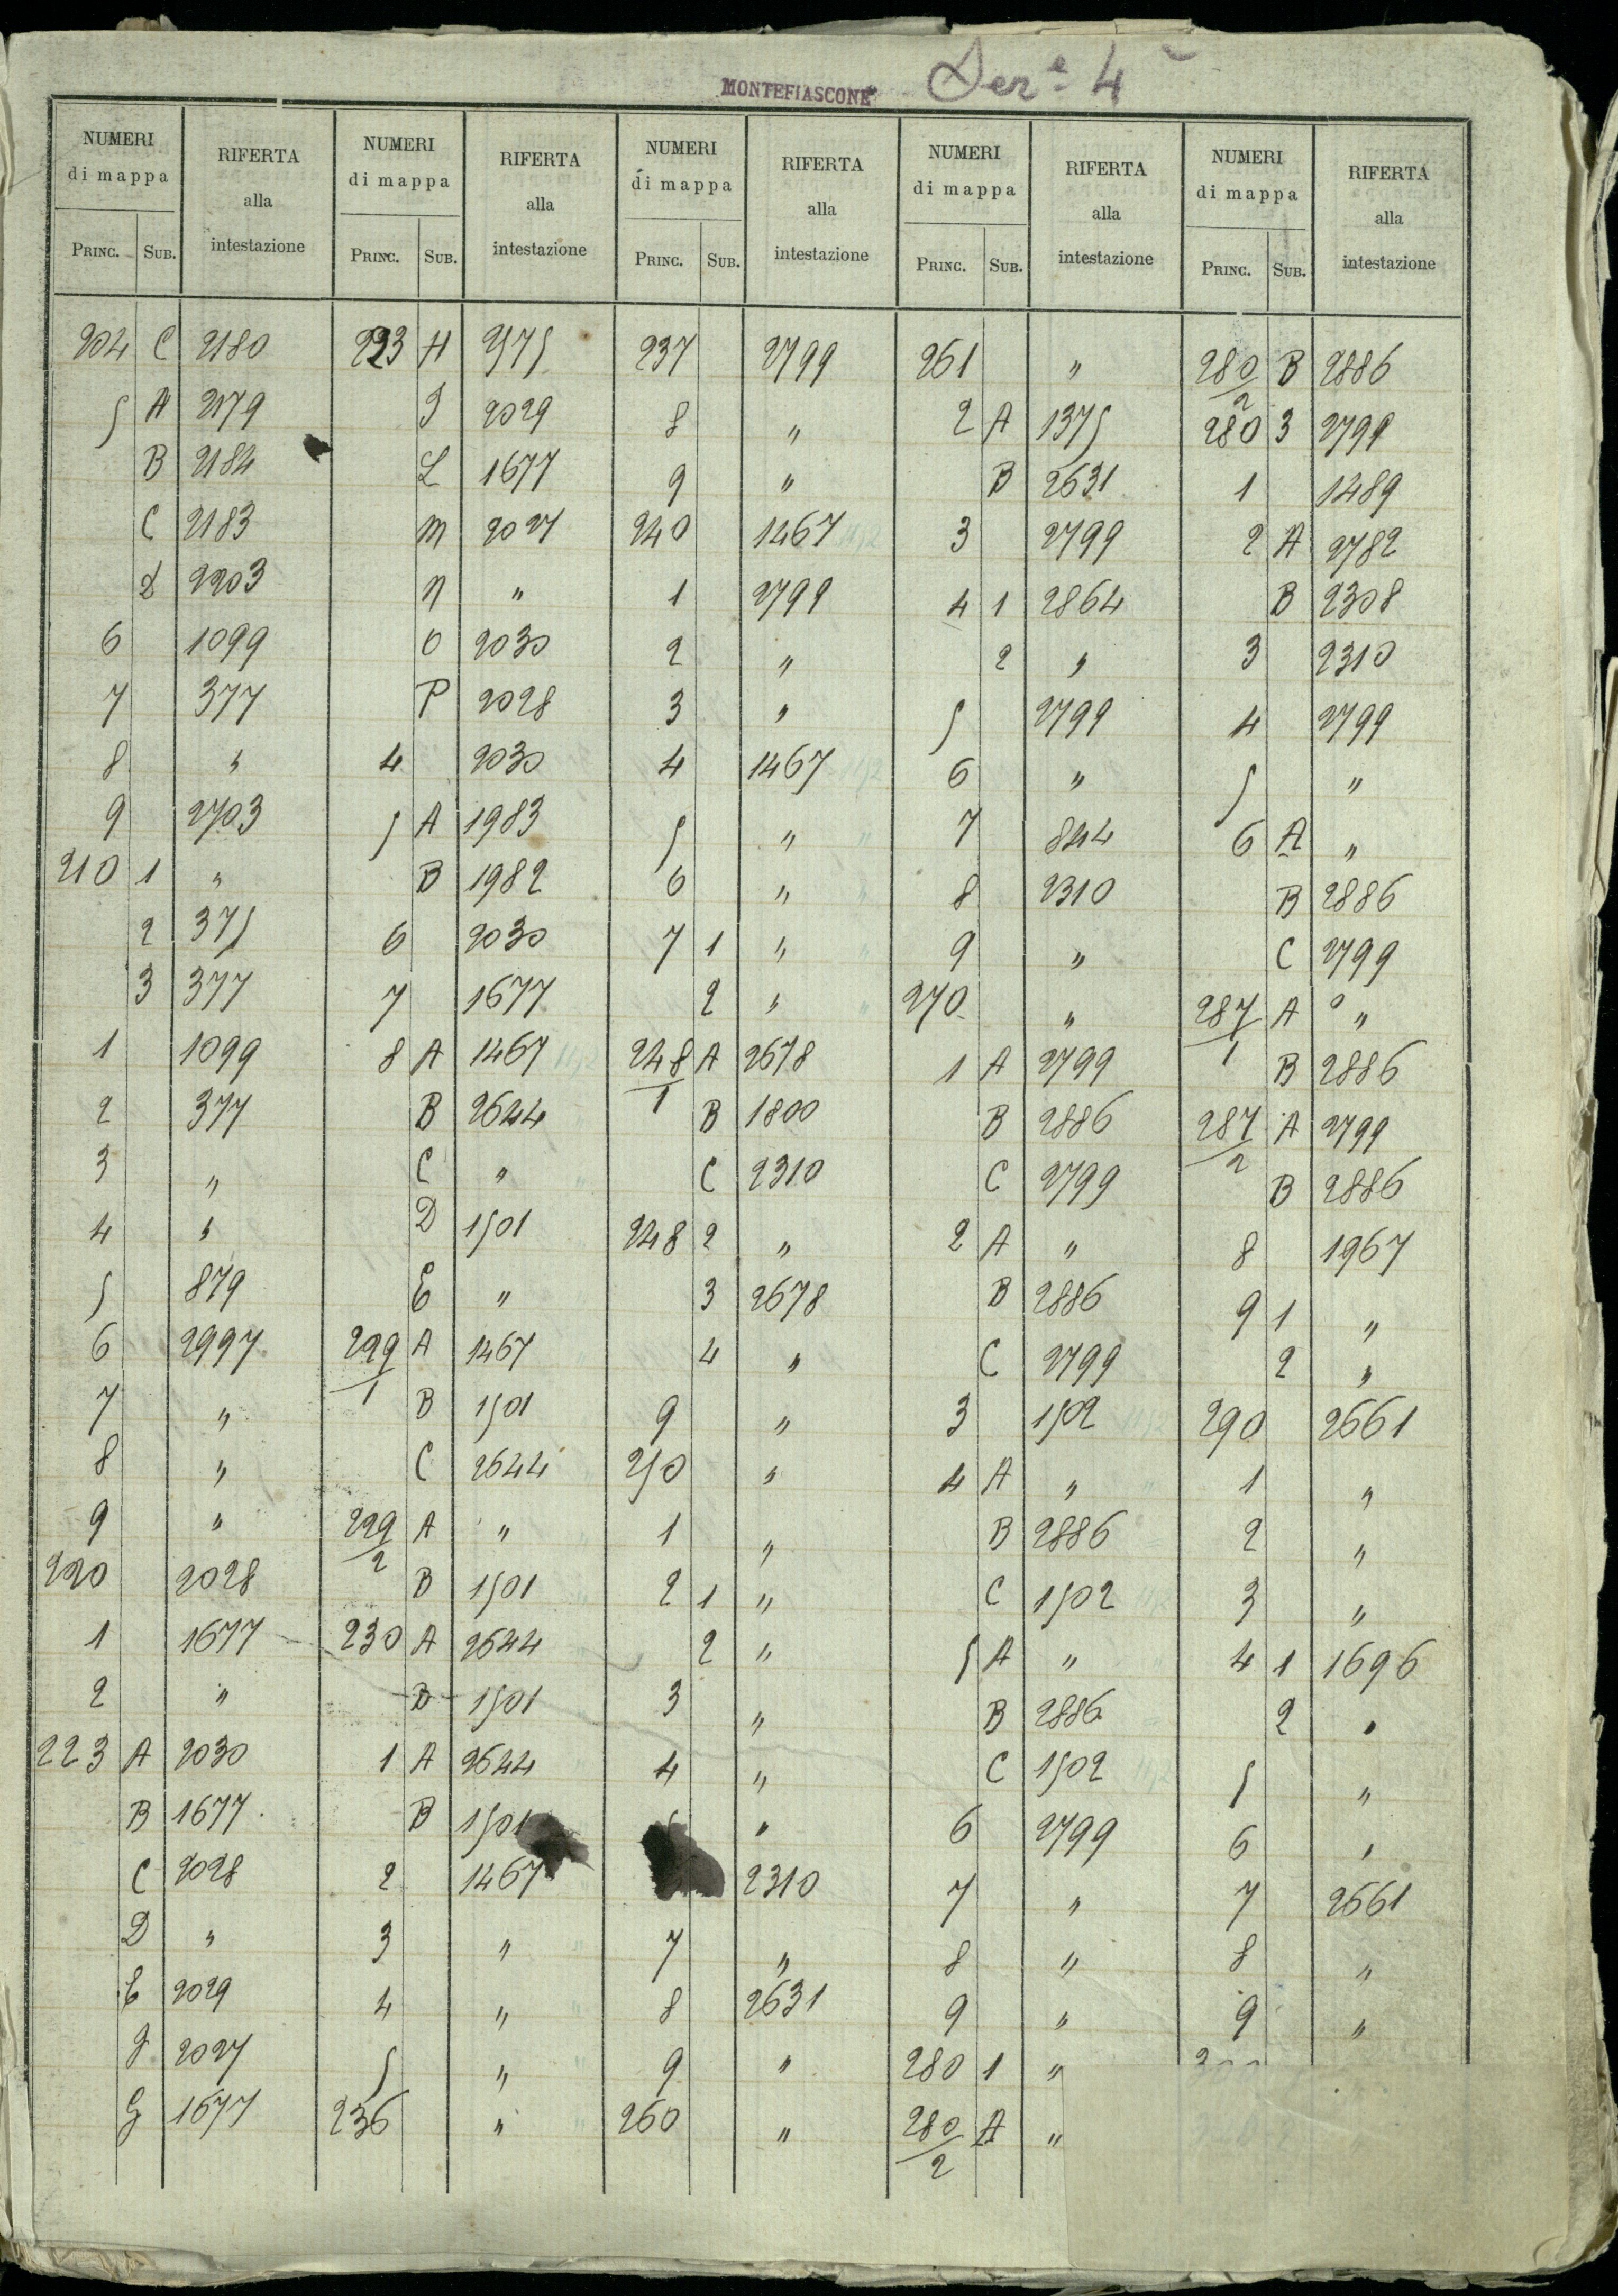 MONTEFIASCONE Sez.e 4ª
NUMERI di mappa RIFERTA alla intestazione NUMERI di mappa RIFERTA alla intestazione NUMERI di mappa RIFERTA alla intestazione NUMERI di mappa RIFERTA alla intestazione NUMERI di mappa RIFERTA alla intestazione
PRINC. SUB. PRINC. SUB. PRINC. SUB. PRINC. SUB. PRINC. SUB.
204 C 2180 223 H 2575 237 2799 261 " 280/2 B 2886
5 A 2179 I 2029 8 " 2 A 1375 280 3 2799
B 2184 L 1677 9 " B 2631 1 1489
C 2183 M 2027 240 1467 3 2799 2 A 2782
D 2203 N " 1 2799 4 1 2864 B 2308
6 1099 O 2030 2 " 2 " 3 2310
7 377 P 2028 3 " 5 2799 4 2799
8 " 4 2030 4 1467 6 " 5 "
9 2703 5 A 1983 5 " 7 844 6 A "
210 1 " B 1982 6 " 8 2310 B 2886
2 375 6 2030 7 1 " 9 " C 2799
3 377 7 1677 2 " 270 " 287/1 A "
1 1099 8 A 1467 248/1 A 2678 1 A 2799 B 2886
2 377 B 2644 B 1800 B 2886 287/2 A 2799
3 " C " C 2310 C 2799 B 2886
4 " D 1501 248 2 " 2 A " 8 1967
5 879 E " 3 2678 B 2886 9 1 "
6 2997 229/1 A 1467 4 " C 2799 2 "
7 " B 1501 9 " 3 1502 290 2661
8 " C 2644 250 " 4 A " 1 "
9 " 229/2 A " 1 " B 2886 2 "
220 2028 B 1501 2 1 " C 1502 3 "
1 1677 230 A 2644 2 " 5 A " 4 1 1696
2 " B 1501 3 " B 2886 2 "
223 A 2030 1 A 2644 4 " C 1502 5 "
B 1677 B 1501 " 6 2799 6 "
C 2028 2 1467 2310 7 " 7 2661
D " 3 " 7 " 8 " 8 "
E 2029 4 " 8 2631 9 " 9 "
F 2027 5 " 9 " 280 1 "
G 1677 236 " 260 " 280/2 A "